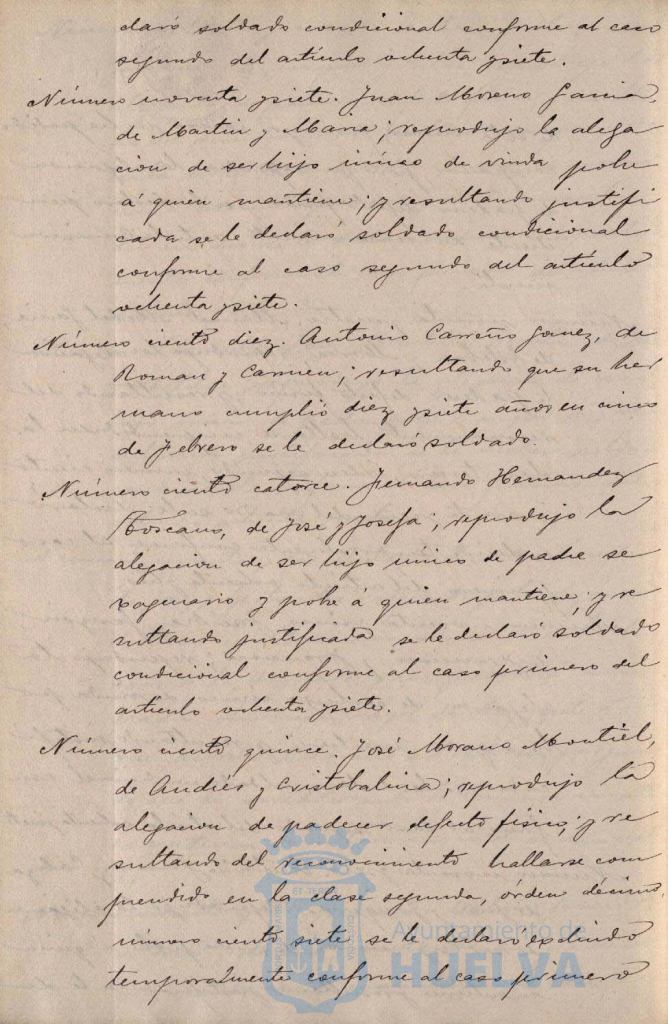 claró soldado condicional conforme al caso
segundo del artículo ochenta y siete.
Número noventa y siete. Juan Moreno Garcia,
de Martin y Maria; reprodujo la alega
cion de ser hijo único de viuda pobre
á quien mantiene; y resultando justifi
cada se le declaró soldado condicional
conforme al caso segundo del artículo
ochenta y siete.
Número ciento diez. Antonio Carreño Gomez, de
Roman y Carmen; resultando que su her
mano cumplió diez y siete años en cinco
de Febrero se le declaró soldado.
Número ciento catorce. Fernando Hernandez
Toscano, de José y Josefa; reprodujo la
alegacion de ser hijo único de padre se
xagenario y pobre á quien mantiene, y re
sultando justificada se le declaró soldado
condicional conforme al caso primero del
artículo ochenta y siete.
Número ciento quince. José Morano Montiel,
de Andrés y Cristobalina; reprodujo la
alegacion de padecer defecto físico; y re
sultando del reconocimiento hallarse com
prendido en la clase segunda, órden décimo,
número ciento siete se le declaró excluido
temporalmente conforme al caso primero
Ayuntamiento de
HUELVA